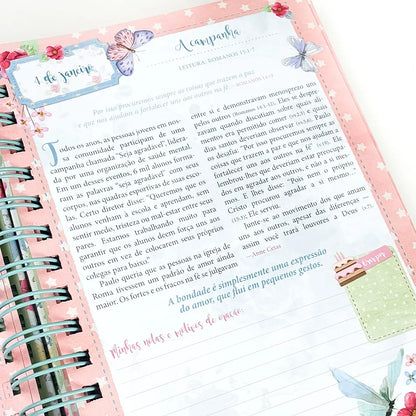 4 de janeiro
A campanha
LEITURA: ROMANOS 15:1-7
Por isso procuremos sempre as coisas que trazem a paz
e que nos ajudam a fortalecer uns aos outros na fé —ROMANOS 14:19
Todos os anos, as pessoas jovens em nos-
sa comunidade participam de uma
campanha chamada "Seja agradável", lidera-
da por uma organização de saúde mental.
Em um desses eventos, 6 mil alunos forma-
ram as palavras "seja agradável" com seus
corpos, nas quadras esportivas de suas esco-
las. Certo diretor disse: "Queremos que os
alunos venham à escola e aprendam, sem
sentir medo, tristeza ou mal-estar entre seus
pares. Estamos trabalhando muito para
garantir que os alunos deem força uns aos
outros em vez de colocarem seus próprios
colegas para baixo."
Paulo queria que as pessoas na igreja de
Roma tivessem um padrão de amor ainda
maior. Os fortes e os fracos na fé se julgaram
entre si e demonstraram menosprezo uns
pelos outros
avam quando discutiam sobre quais ali-
mentos era permitido comer
quais dias santos deveriam observar
Paulo os desafiou: "Por isso procuremos sempre as
coisas que trazem a paz e que nos ajudam a
fortalecer uns aos outros na fé"
lembrou-lhes que deveriam estar preocupa-
dos em agradar aos outros, e não a si mes-
mos. E lhes disse: "Pois nem o próprio
Cristo procurou agradar a si mesmo..."
Ele serviu.
Junte-se ao movimento dos que amam
uns aos outros: apesar das diferenças —
assim você trará louvores a Deus
—Anne Cetas
A bondade é simplesmente uma expressão
do amor, que flui em pequenos gestos.
Minhas notas e motivos de oração:
HAPPY